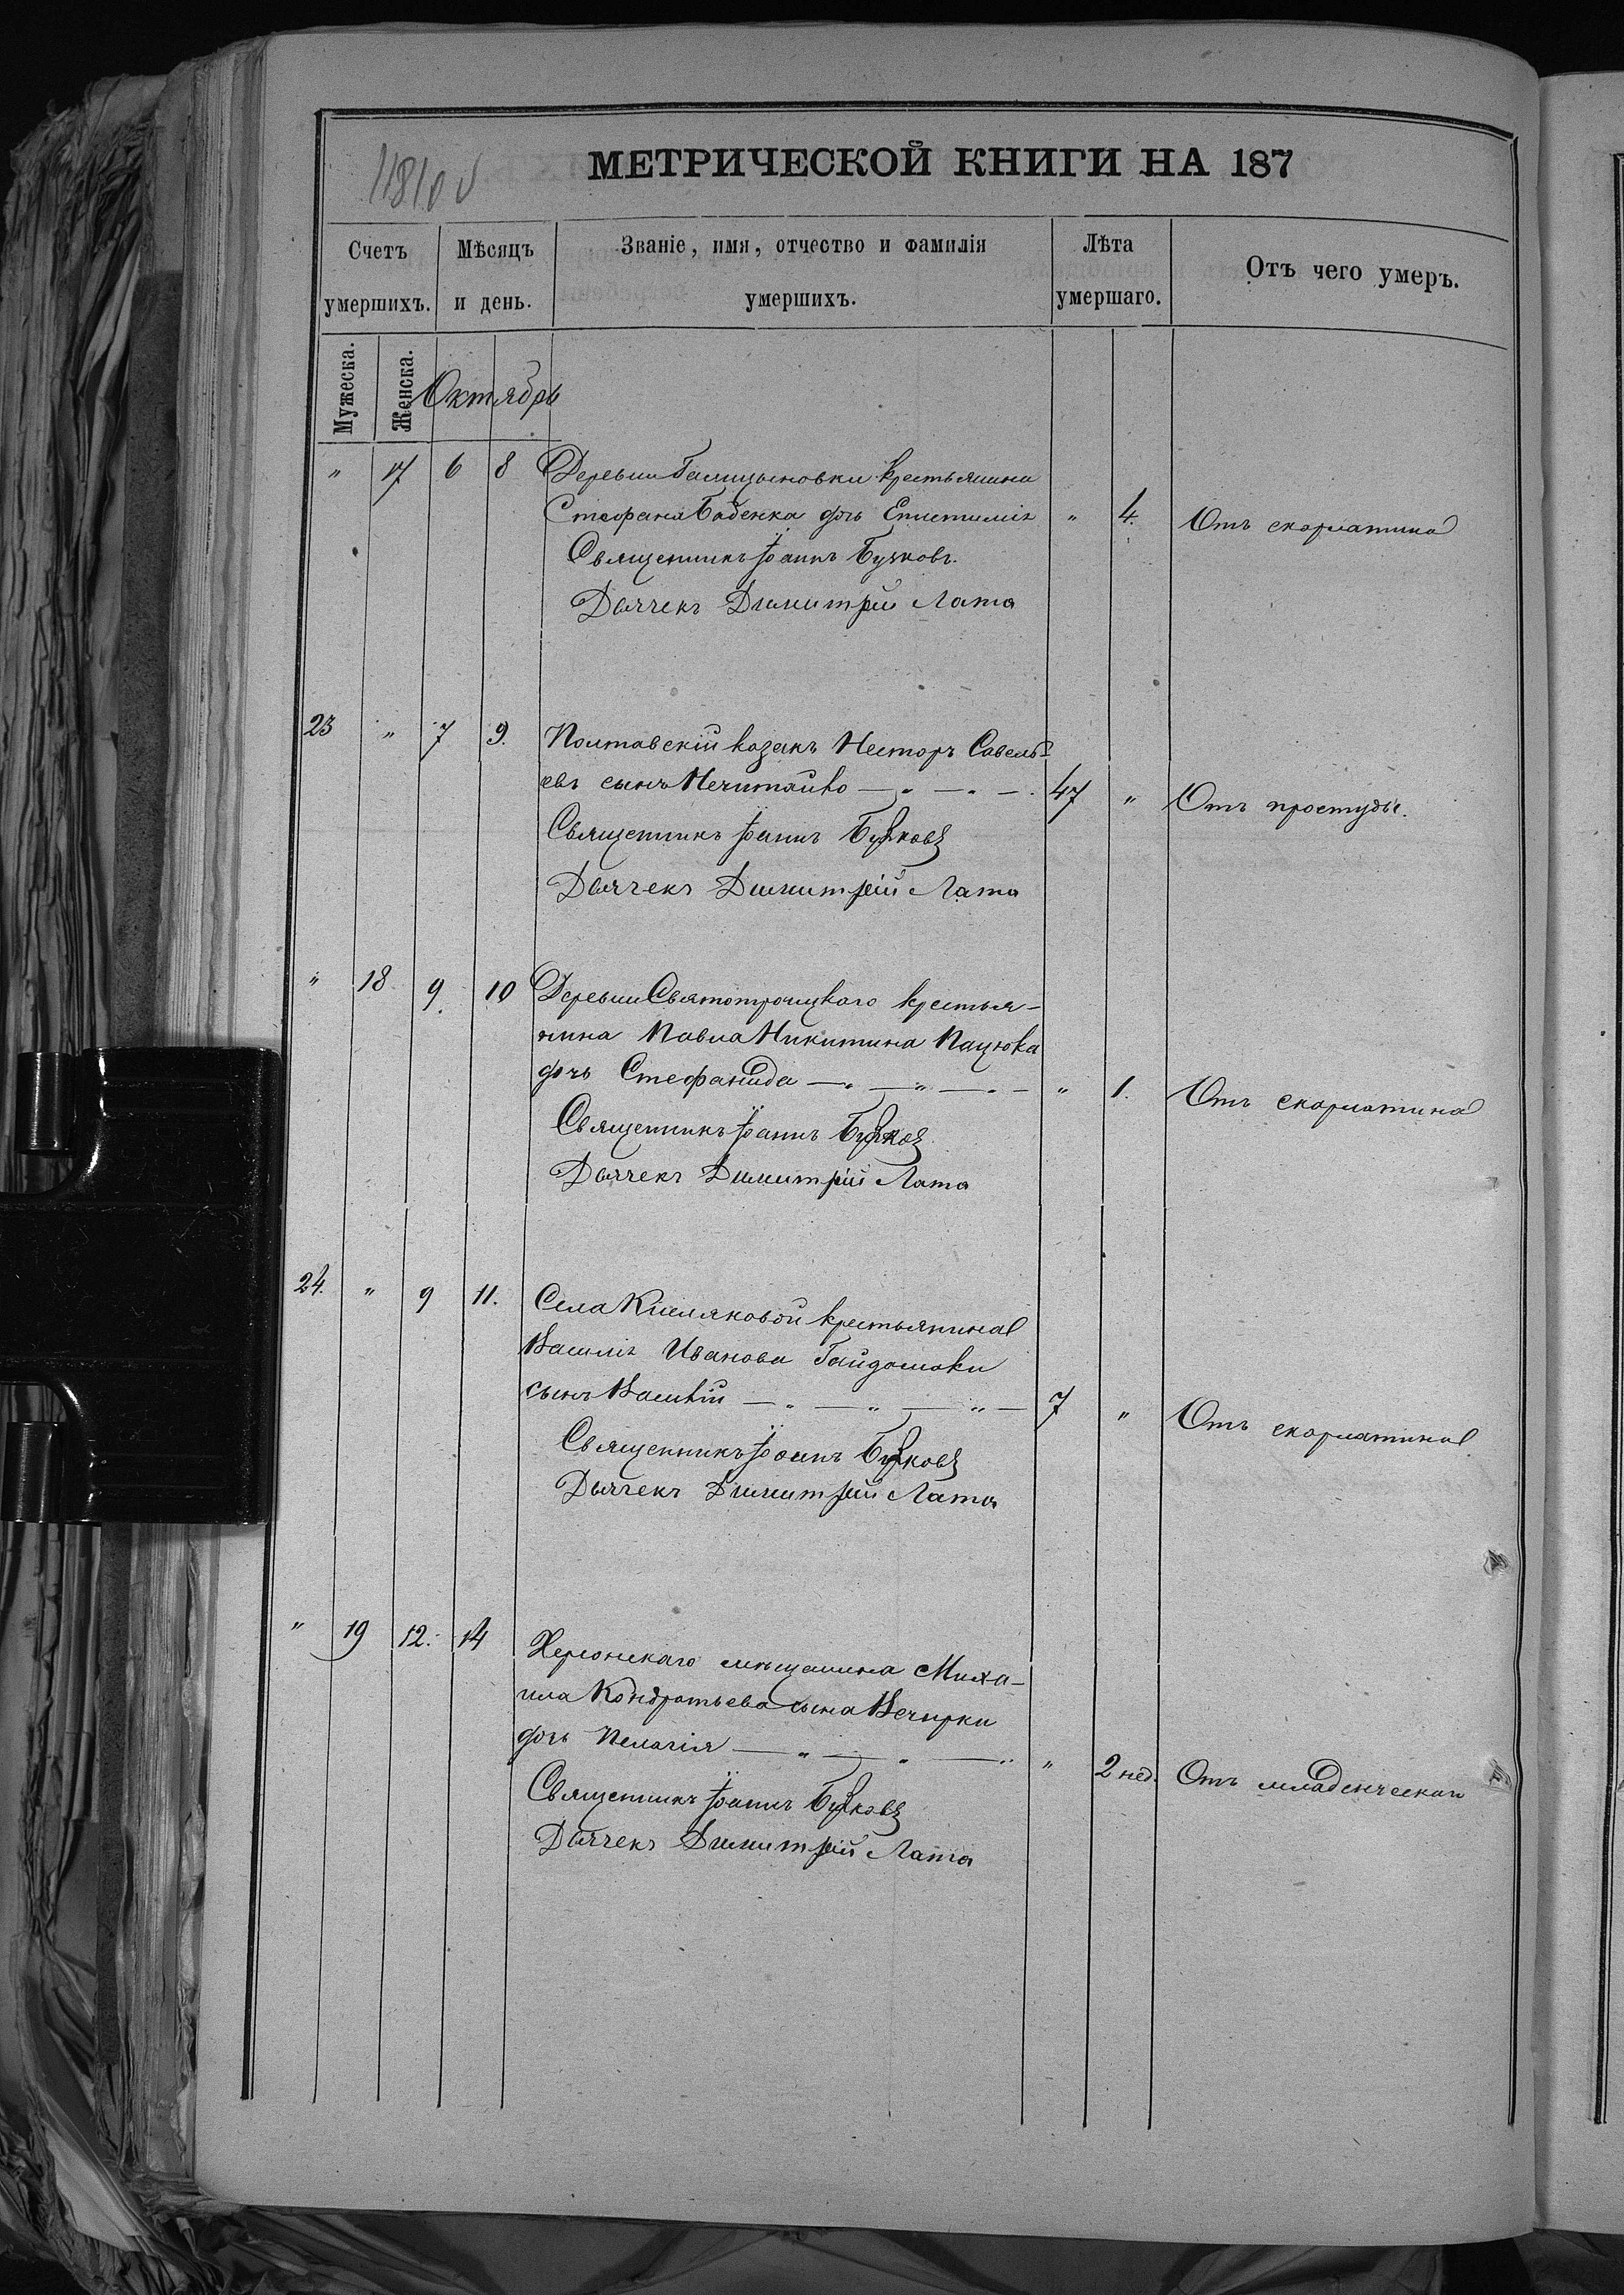 1181об
МЕТРИЧЕСКОЙ КНИГИ НА 187
Счетъ умершихъ.
Мѣсяцъ и день.
Званіе, имя, отчество и фамилія умершихъ.
Лѣта умершаго.
Отъ чего умеръ.
Мужеска.
Женска.
Октябрь
" 17 6 8 Деревни Галицыновки крестьянина
Стефана Бабенка дочь Епистимія " 4. Отъ скарлатина
Священникъ Іоаннъ Бучковъ.
Дьячекъ Димитрій Лата
23 " 7 9. Полтавскій козакъ Несторъ Савель-
евъ сынъ Нечитайко — " — " — 47 " Отъ простуды.
Священникъ Іоаннъ Бучковъ
Дьячекъ Димитрій Лата
" 18 9. 10 Деревни Святотроицкаго крестья-
нина Павла Никитина Пацюка
дочь Стефанида — " — " — " — " 1. Отъ скарлатина
Священникъ Іоаннъ Бучковъ
Дьячекъ Димитрій Лата
24. " 9 11. Села Кисляковой крестьянина
Василія Иванова Гайдамаки
сынъ Василій — " — " — " — 7 " Отъ скарлатина
Священникъ Іоаннъ Бучковъ
Дьячекъ Димитрій Лата
" 19 12. 14 Херсонскаго мѣщанина Миха-
ила Кондратьева сына Вечирки
дочь Пелагія — " — " — " " 2 нед. Отъ младенческаго
Священникъ Іоаннъ Бучковъ
Дьячекъ Димитрій Лата